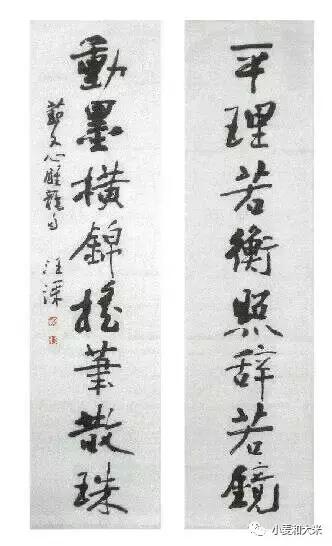 平理若衡照辞若鏡
動墨橫錦搖筆散珠
文心雕龍句
小麦和大米